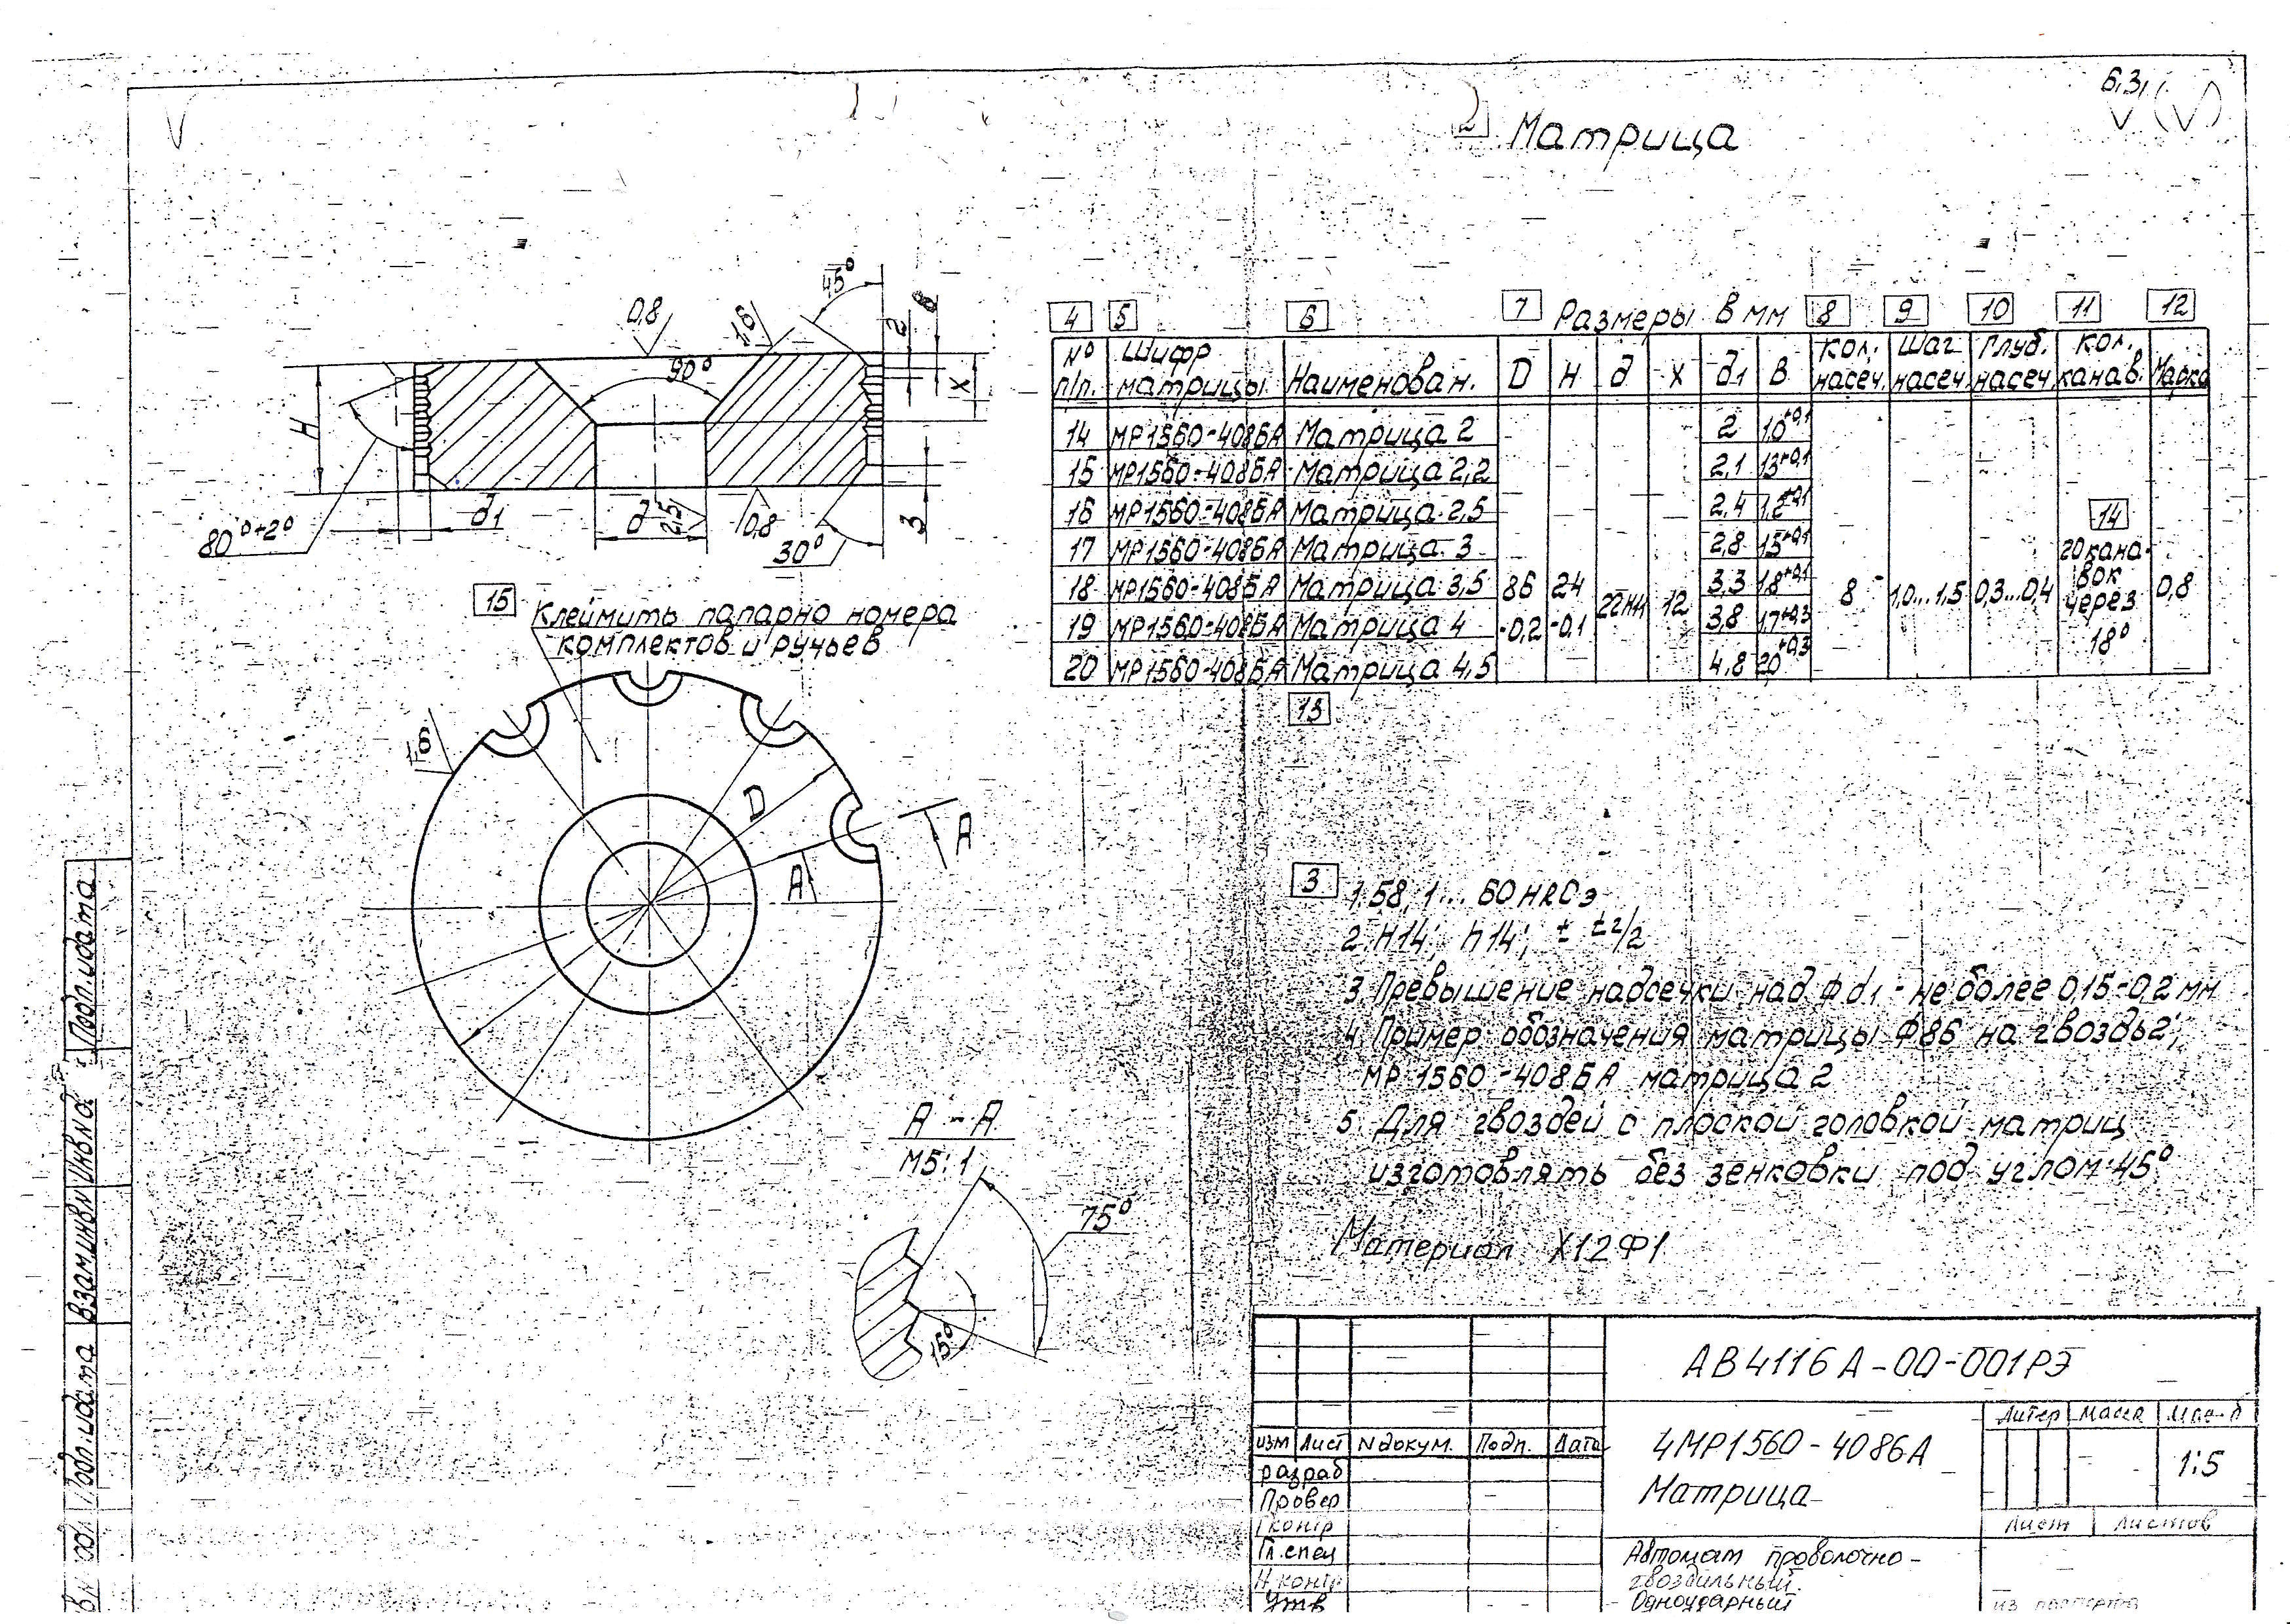 6,3
2 Матрица
45°
в
0,8
1,6
2
90°
x
H
80°+2°
d1
d
2,5
0,8
30°
3
7 Размеры в мм
4 5 6 8 9 10 11 12
№ п/п. Шифр матрицы Наименован. D H d x d1 В кол. насеч. шаг насеч. глуб. насеч. кол. канав. Марка
14 МР1560-4086А Матрица 2 2 1,0+0,1
15 МР1560-4086А Матрица 2,2 2,1 13+0,1
16 МР1560-4086А Матрица 2,5 2,4 1,2+0,1
17 МР1560-4086А Матрица 3 2,8 15+0,1
18 МР1560-4086А Матрица 3,5 3,3 18+0,1
19 МР1560-4086А Матрица 4 3,8 17+0,3
20 МР1560-4086А Матрица 4,5 4,8 20+0,3
86 -0,2
24 -0,1
22Н11
12
8
1,0...1,5
0,3...0,4
14
20 кана-
вок
через
18°
0,8
13
15 Клеймить попарно номера
комплектов и ручьев
1,6
D
А
А
А - А
М5:1
75°
15°
3 1. 58,1... 60 HRCэ
2. Н14; h14; ± t2/2
3 Превышение надсечки над ф d1 - не более 0,15-0,2 мм
4. Пример обозначения матрицы Ф86 на гвоздь2;
МР 1560-4086А матрица 2
5. Для гвоздей с плоской головкой матриц
изготовлять без зенковки под углом 45°
Материал Х12Ф1
АВ4116А-00-001РЭ
4МР1560-4086А
Матрица
Литер Масса Мас-б
1:5
Лист Листов
изм Лист N докум. Подп. Дата
разраб
Провер
Т контр
Гл. спец
Н. контр
Утв
Автомат проволочно-
гвоздильный.
Одноударный
из паспорта
Подп. и дата
Взам инв N Инв N д
Подп. и дата